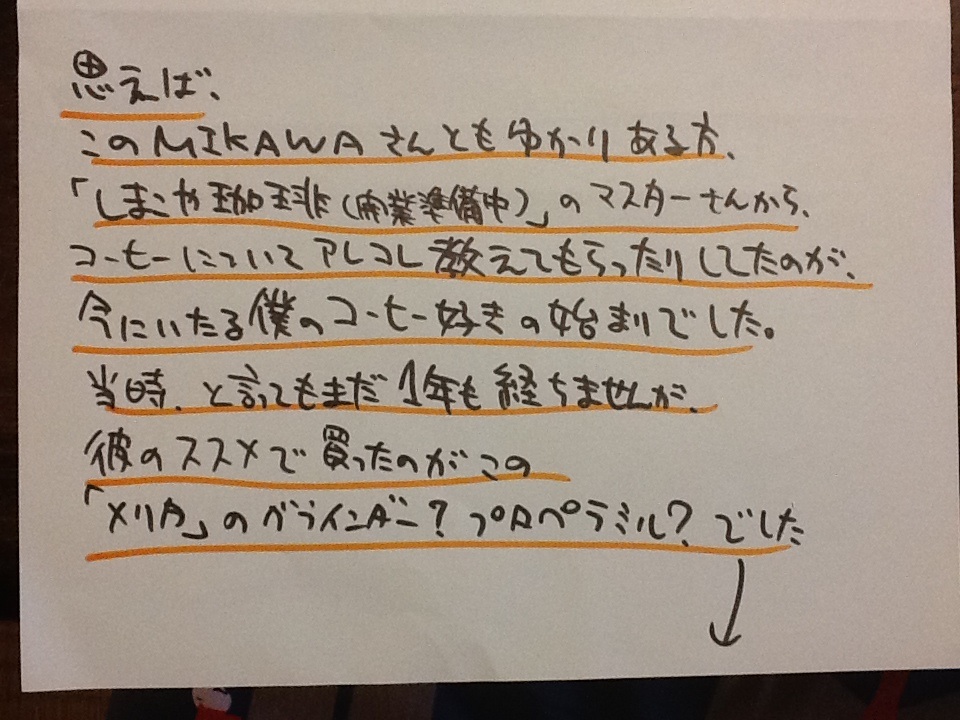 思えば、
このMIKAWAさんともゆかりある方、
「しまや珈琲（開業準備中）」のマスターさんから、
コーヒーについてアレコレ教えてもらったりしてたのが、
今にいたる僕のコーヒー好きの始まりでした。
当時、と言ってもまだ1年も経ちませんが、
彼のススメで買ったのがこの
「メリタ」のグラインダー？プロペラミル？でした